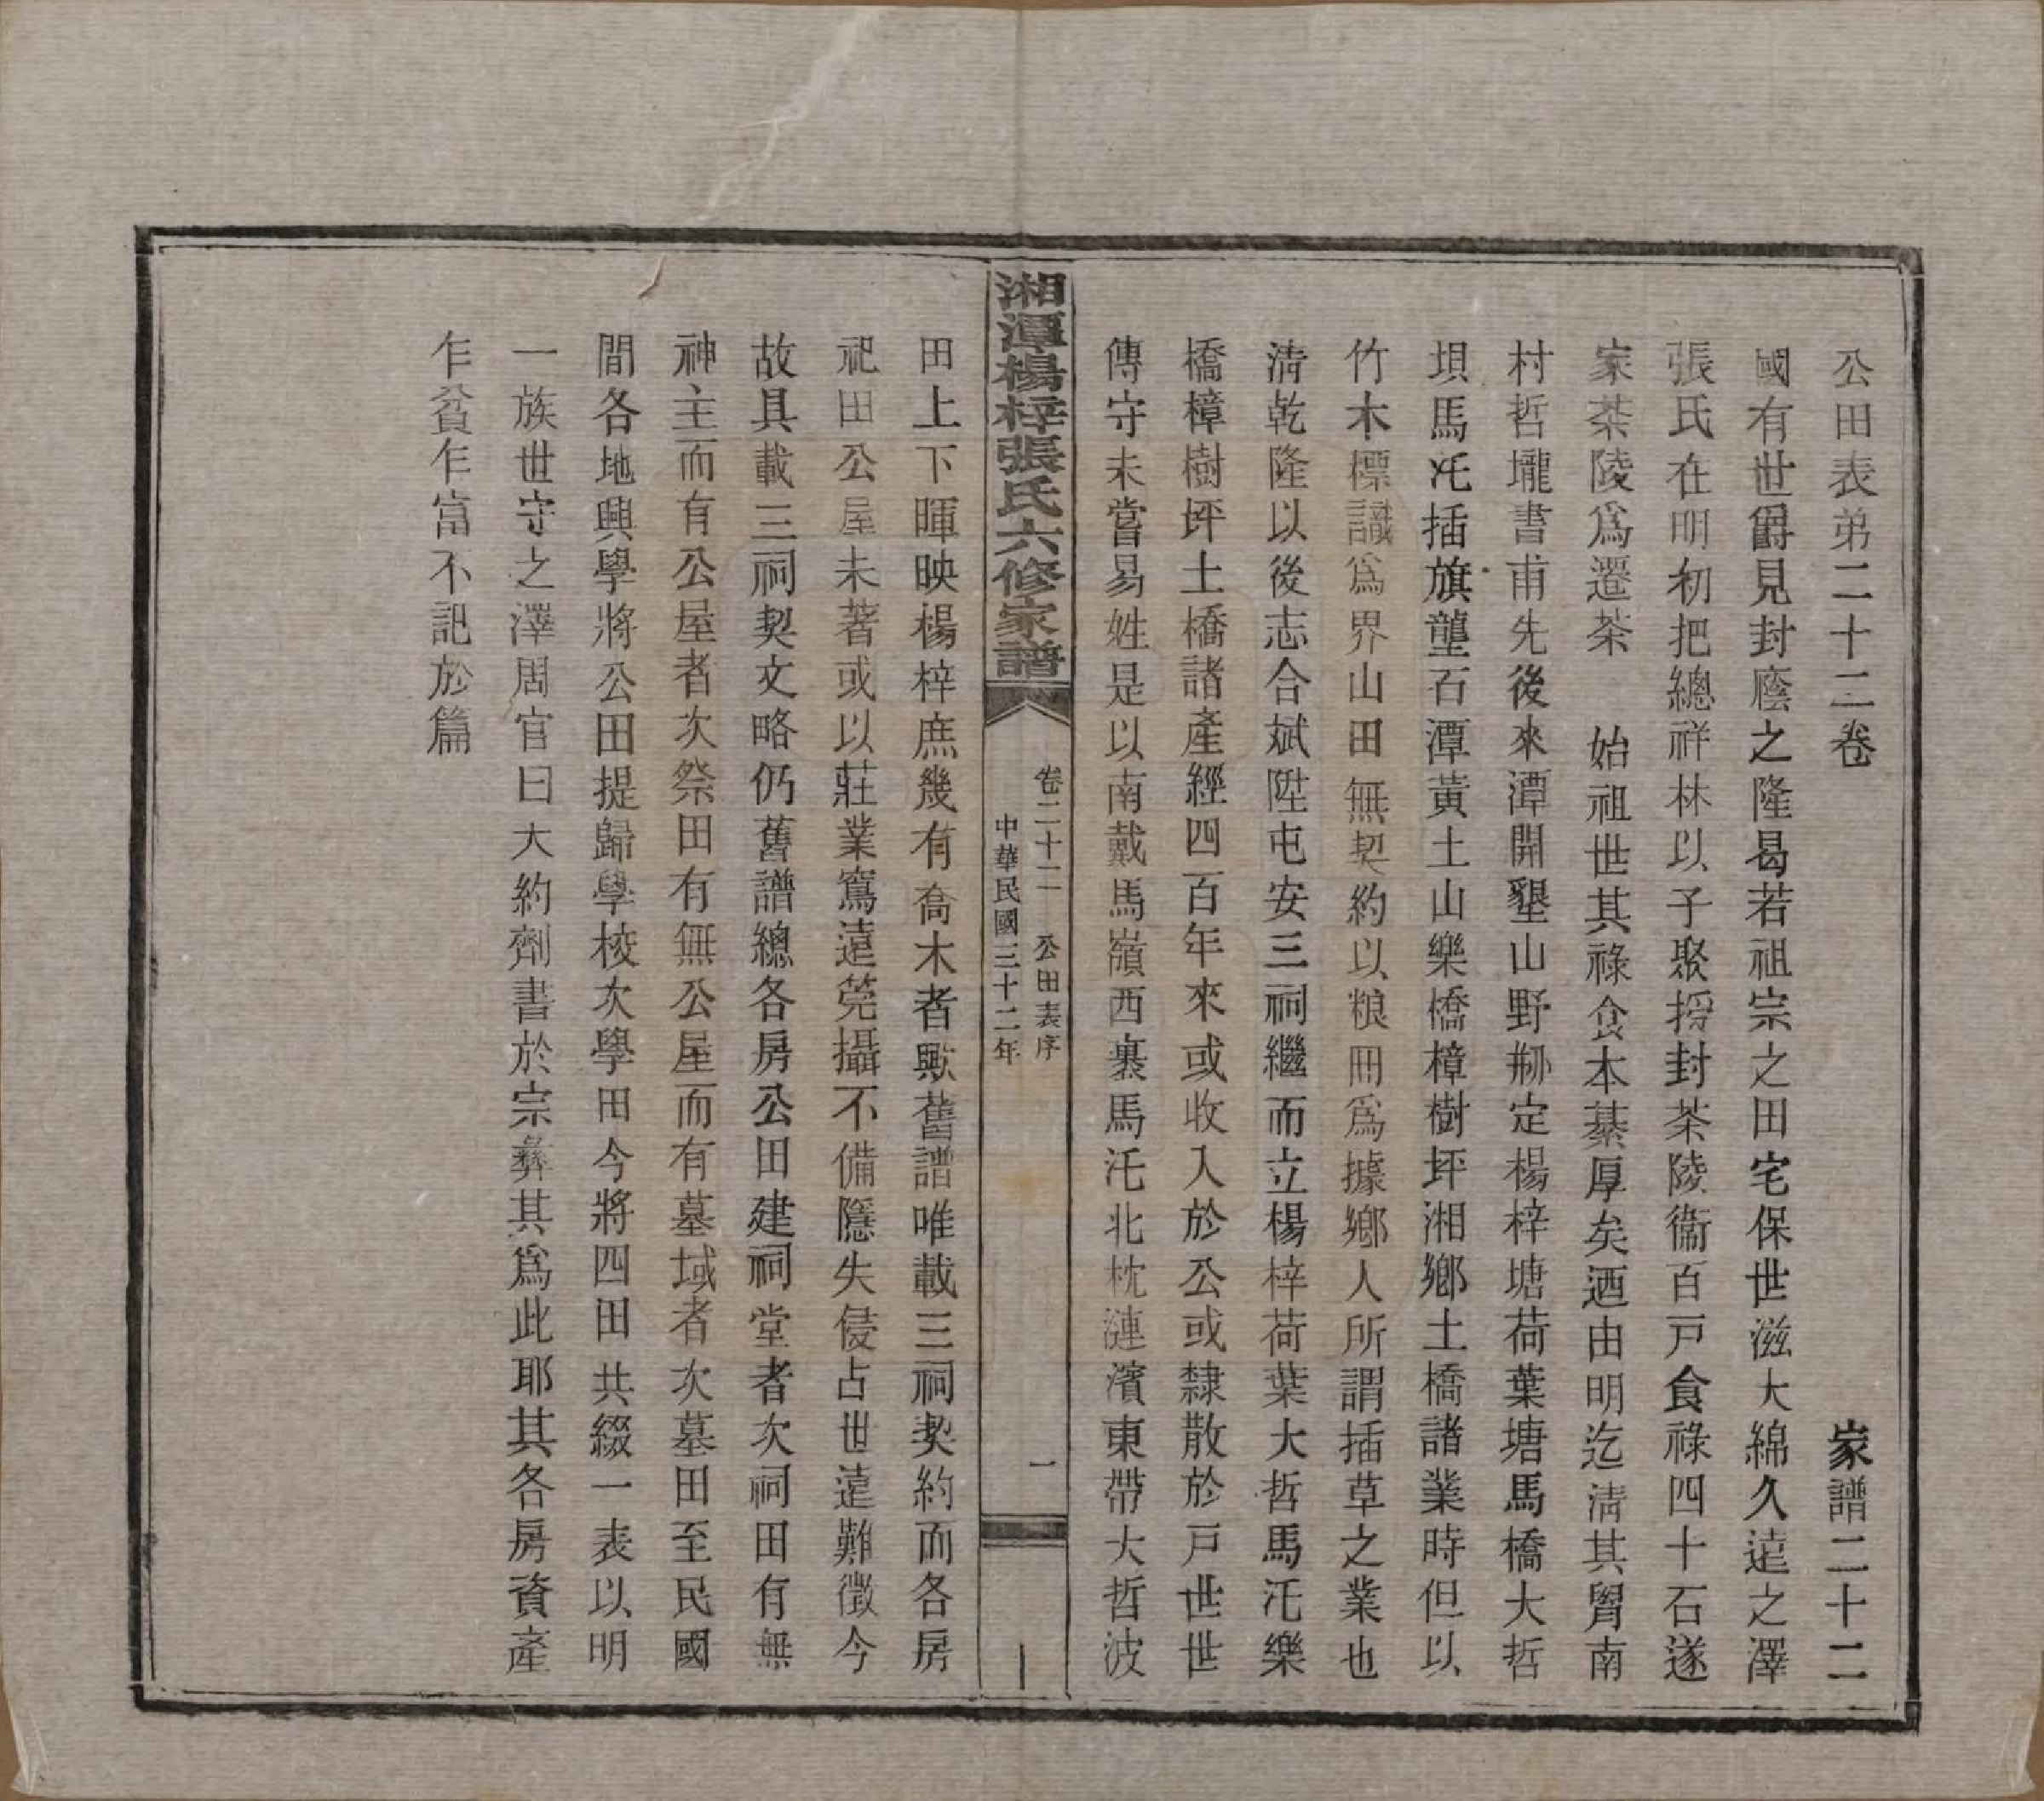 公田表弟二十二卷　家譜二十二
國有世爵見封廕之隆曷若祖宗之田宅保世滋大綿久遠之澤
張氏在明初把總祥林以子聚授封茶陵衞百戸食祿四十石遂
家茶陵爲遷茶　始祖世其祿食本綦厚矣迺由明迄淸其胄南
村哲壠書甫先後來潭開墾山野刱定楊梓塘荷葉塘馬橋大哲
垻馬汑插旗壟石潭黃土山樂橋樟樹坪湘鄉土橋諸業時但以
竹木標識爲界山田無契約以粮冊爲據鄉人所謂插草之業也
淸乾隆以後志合斌陞屯安三祠繼而立楊梓荷葉大哲馬汑樂
橋樟樹坪土橋諸產經四百年來或收入於公或隸散於戸世世
傳守未嘗易姓是以南戴馬嶺西裹馬汑北枕漣濱東帶大哲波
湘潭楊梓張氏六修家譜
卷二十二　公田表序　一
中華民國三十二年
田上下暉映楊梓庶幾有喬木者歟舊譜唯載三祠契約而各房
祀田公屋未著或以莊業窵遠莞攝不備隱失侵占世遠難徵今
故具載三祠契文略仍舊譜總各房公田建祠堂者次祠田有無
神主而有公屋者次祭田有無公屋而有墓域者次墓田至民國
間各地興學將公田提歸學校次學田今將四田共綴一表以明
一族世守之澤周官曰大約劑書於宗彝其爲此耶其各房資產
乍貧乍富不記於篇